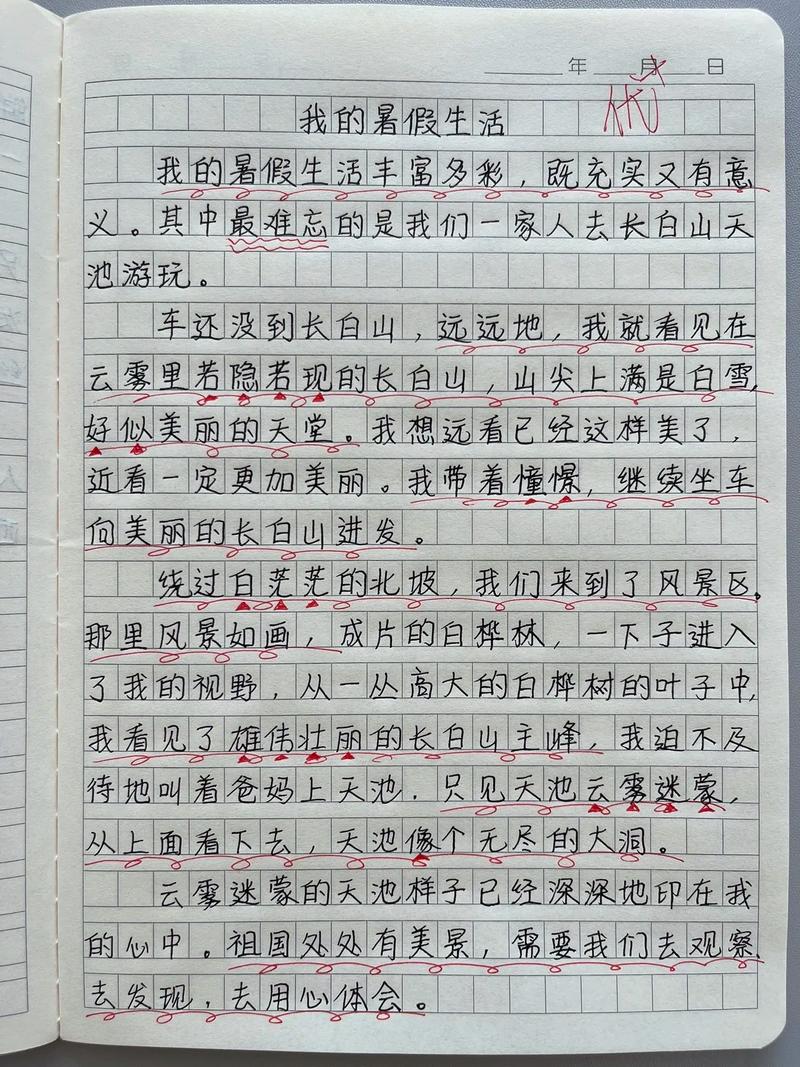 年 月 日
优
我的暑假生活
我的暑假生活丰富多彩，既充实又有意
义。其中最难忘的是我们一家人去长白山天
池游玩。
车还没到长白山，远远地，我就看见在
云雾里若隐若现的长白山，山尖上满是白雪，
好似美丽的天堂。我想远看已经这样美了，
近看一定更加美丽。我带着憧憬，继续坐车
向美丽的长白山进发。
绕过白茫茫的北坡，我们来到了风景区。
那里风景如画，成片的白桦林，一下子进入
了我的视野，从一丛高大的白桦树的叶子中，
我看见了雄伟壮丽的长白山主峰，我迫不及
待地叫着爸妈上天池．只见天池云雾迷蒙，
从上面看下去，天池像个无尽的大洞。
云雾迷蒙的天池样子已经深深地印在我
的心中。祖国处处有美景，需要我们去观察，
去发现，去用心体会。